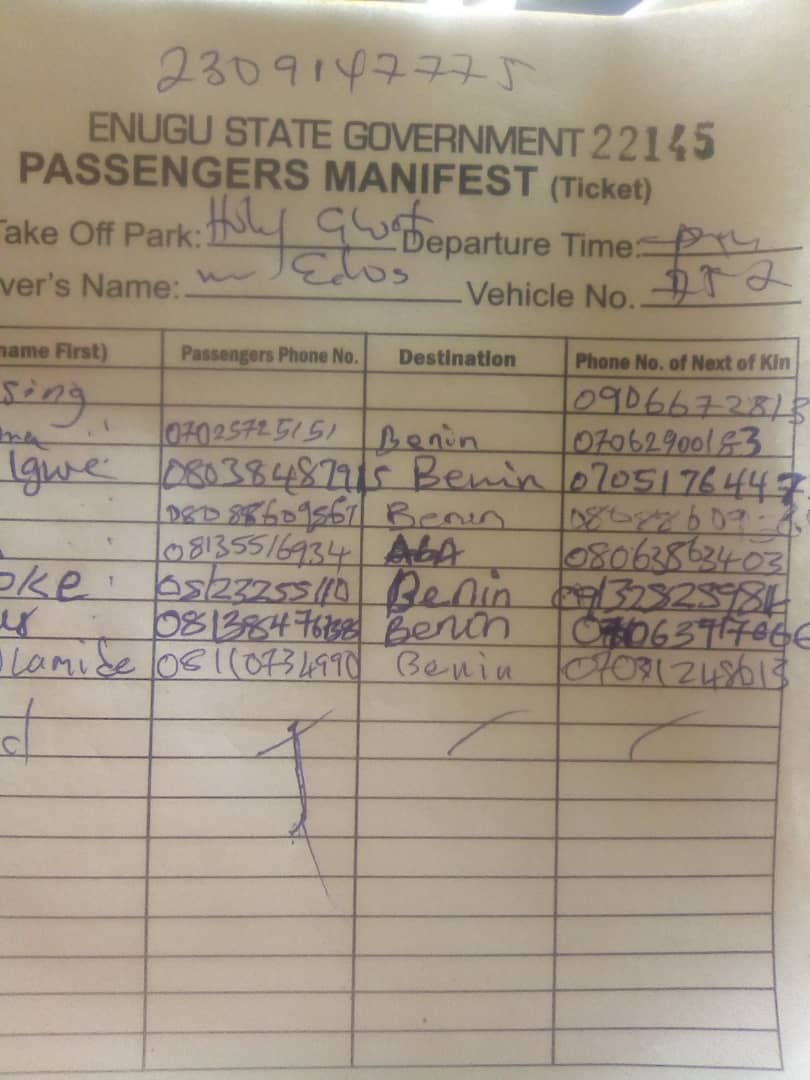 2309147775
ENUGU STATE GOVERNMENT 22145
PASSENGERS MANIFEST (Ticket)
Take Off Park: Holy Ghost Departure Time:
ver's Name: Edos Vehicle No.
name First) Passengers Phone No. Destination Phone No. of Next of Kin
sing 0906672813
07025725151 Benin 07062900183
Igwe Benin 07051764447
08088609567 Benin
08135516934 ABA 08063863403
oke Benin
Benin
lamide 08110734990 Benin 07031248613
d